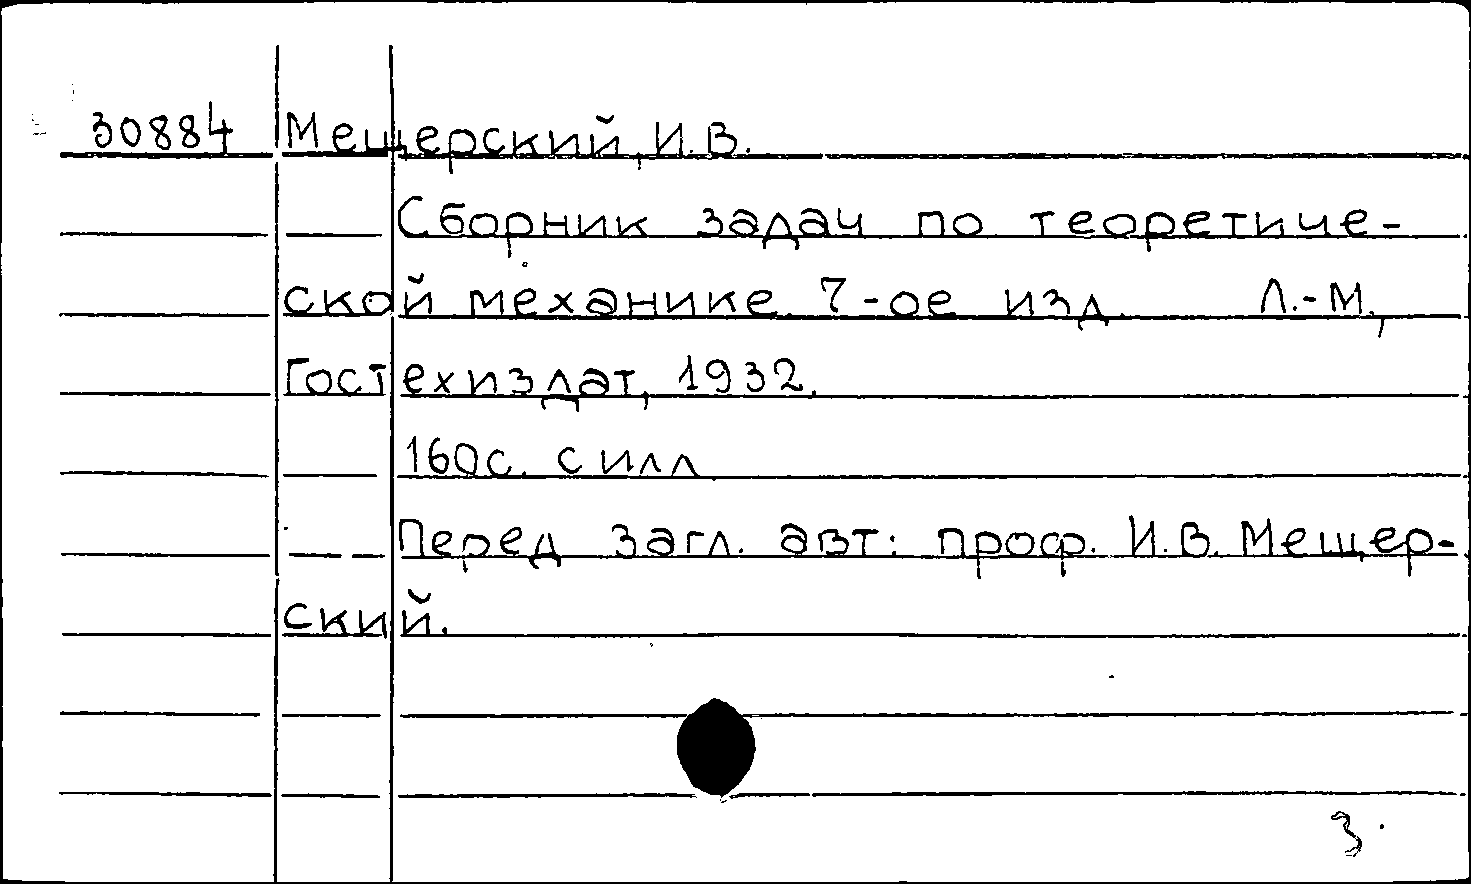 30884 Мещерский, И.В.
Сборник задач по теоретиче-
ской механике. 7-ое изд. Л.-М.,
Гостехиздат, 1932.
160с. с илл.
Перед загл. авт: проф. И.В. Мещер-
ский.
3.